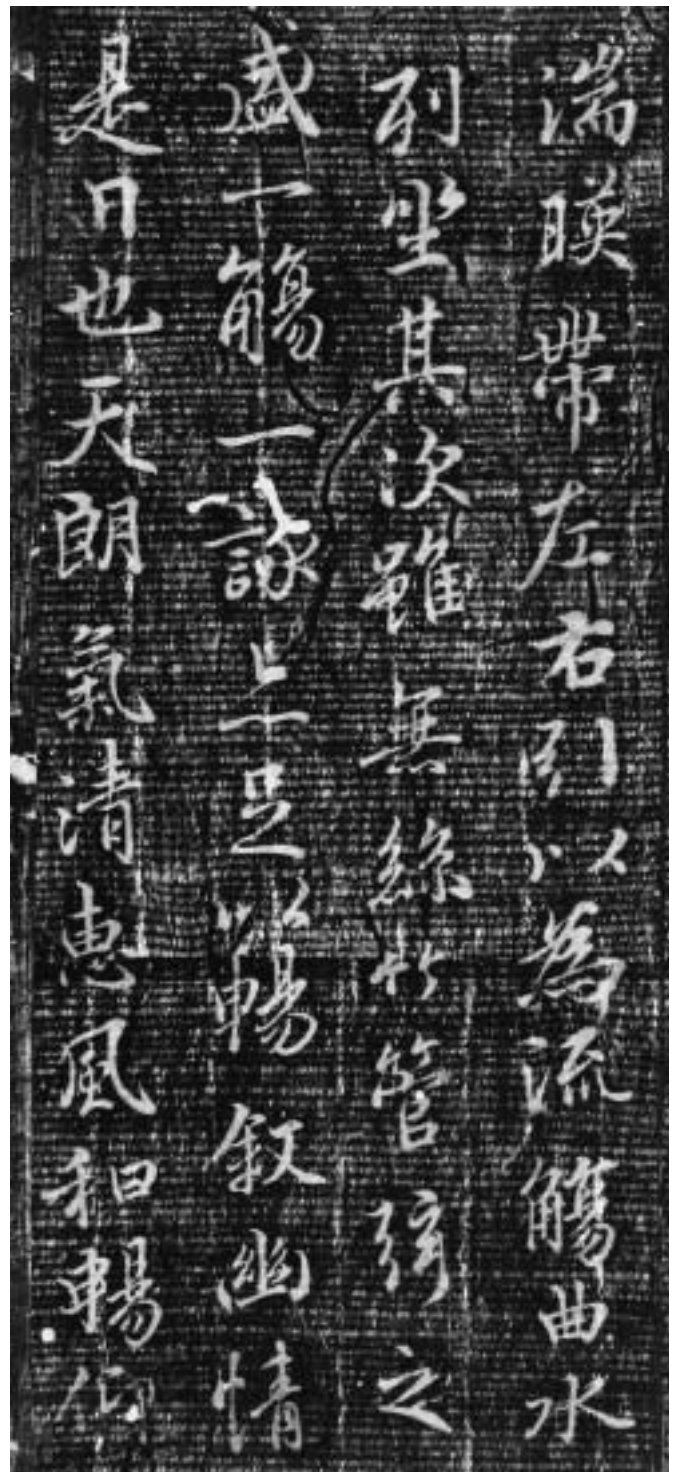 湍暎帶左右引以為流觴曲水
列坐其次雖無絲竹管弦之
盛一觴一詠上亦足以暢敘幽情
是日也天朗氣清惠風和暢仰